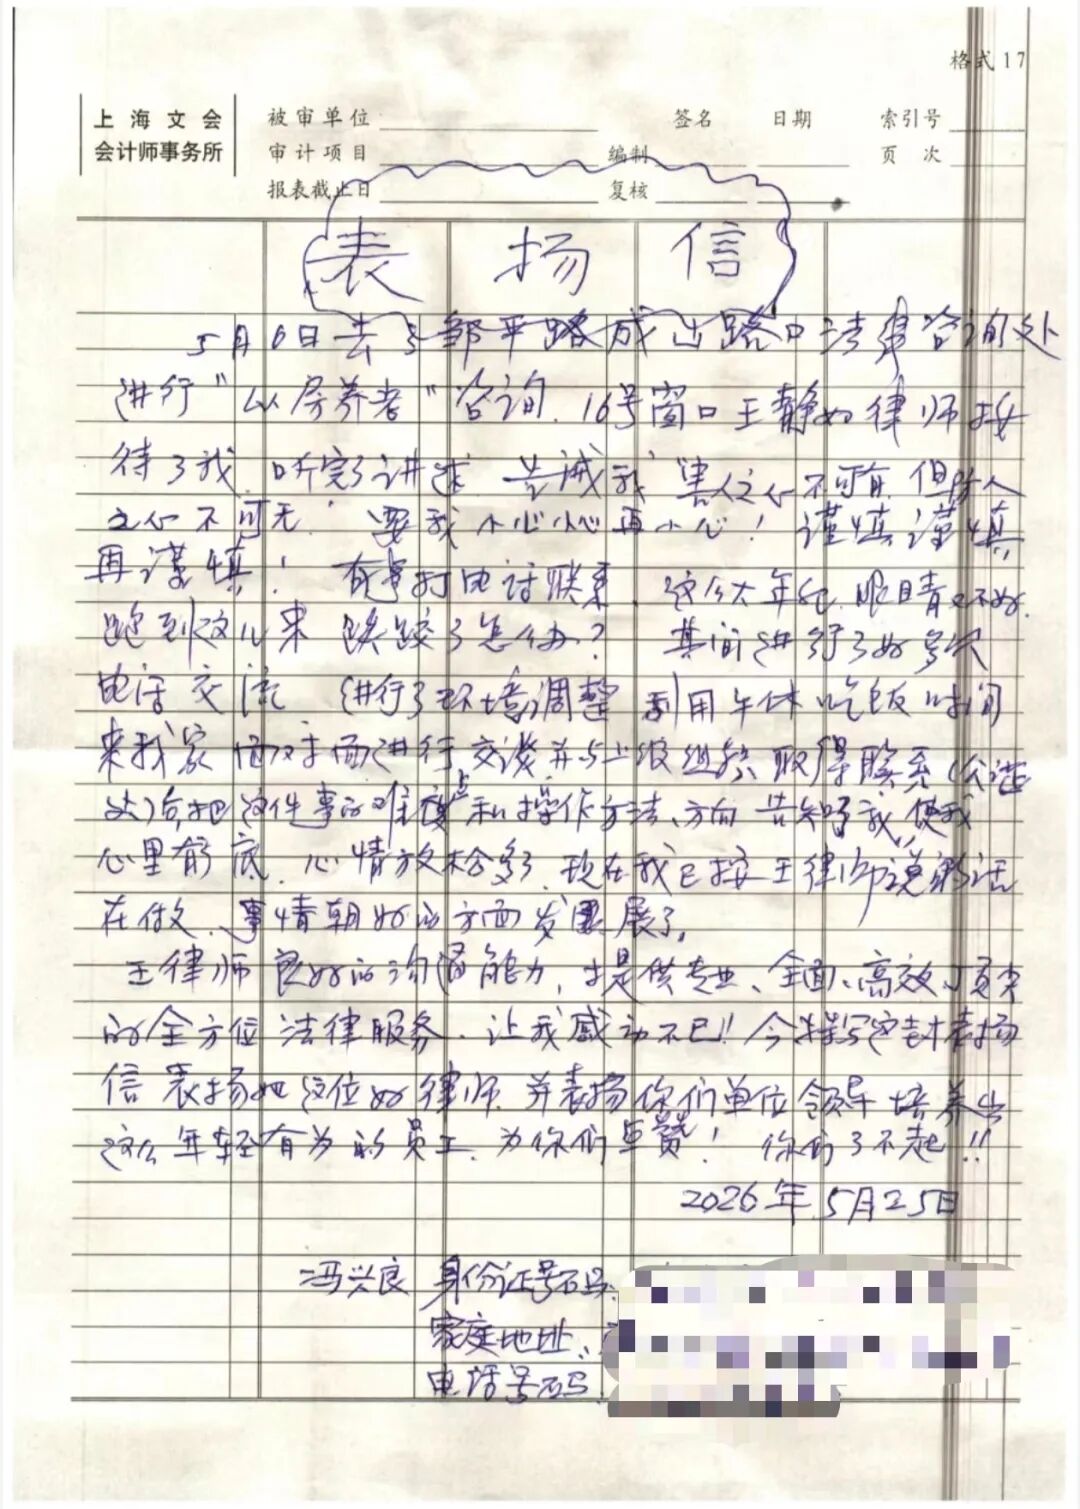 格式17
上海文会
会计师事务所
被审单位 签名 日期 索引号
审计项目 编制 页次
报表截止日 复核
表扬信
5月6日去了邹平路成山路口法律咨询处
进行"以房养老"咨询.16号窗口王静如律师接
待了我.听完了讲述.告诫我"害人之心不可有.但防人
之心不可无".要我小心小心再小心!谨慎谨慎
再谨慎!有事打电话联系.这么大年纪.眼睛又不好.
跑到这儿来 跌跤了怎么办?其间进行了好多次
电话交流 进行了环境调整 利用午休吃饭时间
来我家面对面进行交谈并与上级组织取得联系(公证
处)后,把这件事的难度点和操作方法、方向告知我,使我
心里有底.心情放松多了.现在我已按王律师说的话
在做.事情朝好的方面发展了.
王律师良好的沟通能力,提供专业、全面、高效、顶尖
的全方位法律服务.让我感动不已!!今特写这封表扬
信表扬她这位好律师.并表扬你们单位领导培养出
这么年轻有为的员工.为你们点赞!你们了不起!!
2026年5月25日
冯兴良 身份证号码:
家庭地址:
电话号码